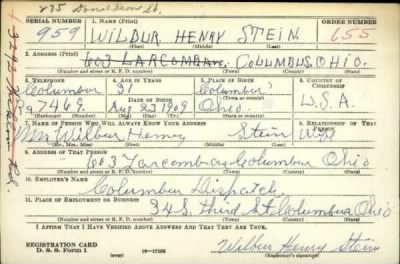 275 Donaldson St.
SERIAL NUMBER 1. NAME (Print) ORDER NUMBER
959 WILBUR HENRY STEIN 655
(First) (Middle) (Last)
2. ADDRESS (Print)
603 LARCOMB AV. COLUMBUS. OHIO.
(Number and street or R. F. D. number) (Town) (County) (State)
3. TELEPHONE 4. AGE IN YEARS 5. PLACE OF BIRTH 6. COUNTRY OF CITIZENSHIP
31 Columbus
DATE OF BIRTH (Town or county)
Ra 7469 Aug 23 1909 Ohio U.S.A.
(Exchange) (Number) (Mo.) (Day) (Yr.) (State or country)
7. NAME OF PERSON WHO WILL ALWAYS KNOW YOUR ADDRESS 8. RELATIONSHIP OF THAT PERSON
Mrs Wilbur Henry Stein Wife
(Mr., Mrs., Miss) (First) (Middle) (Last)
9. ADDRESS OF THAT PERSON
603 Larcomb av Columbus Ohio
(Number and street or R. F. D. number) (Town) (County) (State)
10. EMPLOYER'S NAME
Columbus Dispatch
11. PLACE OF EMPLOYMENT OR BUSINESS
34 S. third St. Columbus Ohio
(Number and street or R. F. D. number) (Town) (County) (State)
I AFFIRM THAT I HAVE VERIFIED ABOVE ANSWERS AND THAT THEY ARE TRUE.
REGISTRATION CARD
D. S. S. Form 1 (over) Wilbur Henry Stein
(Registrant's signature)